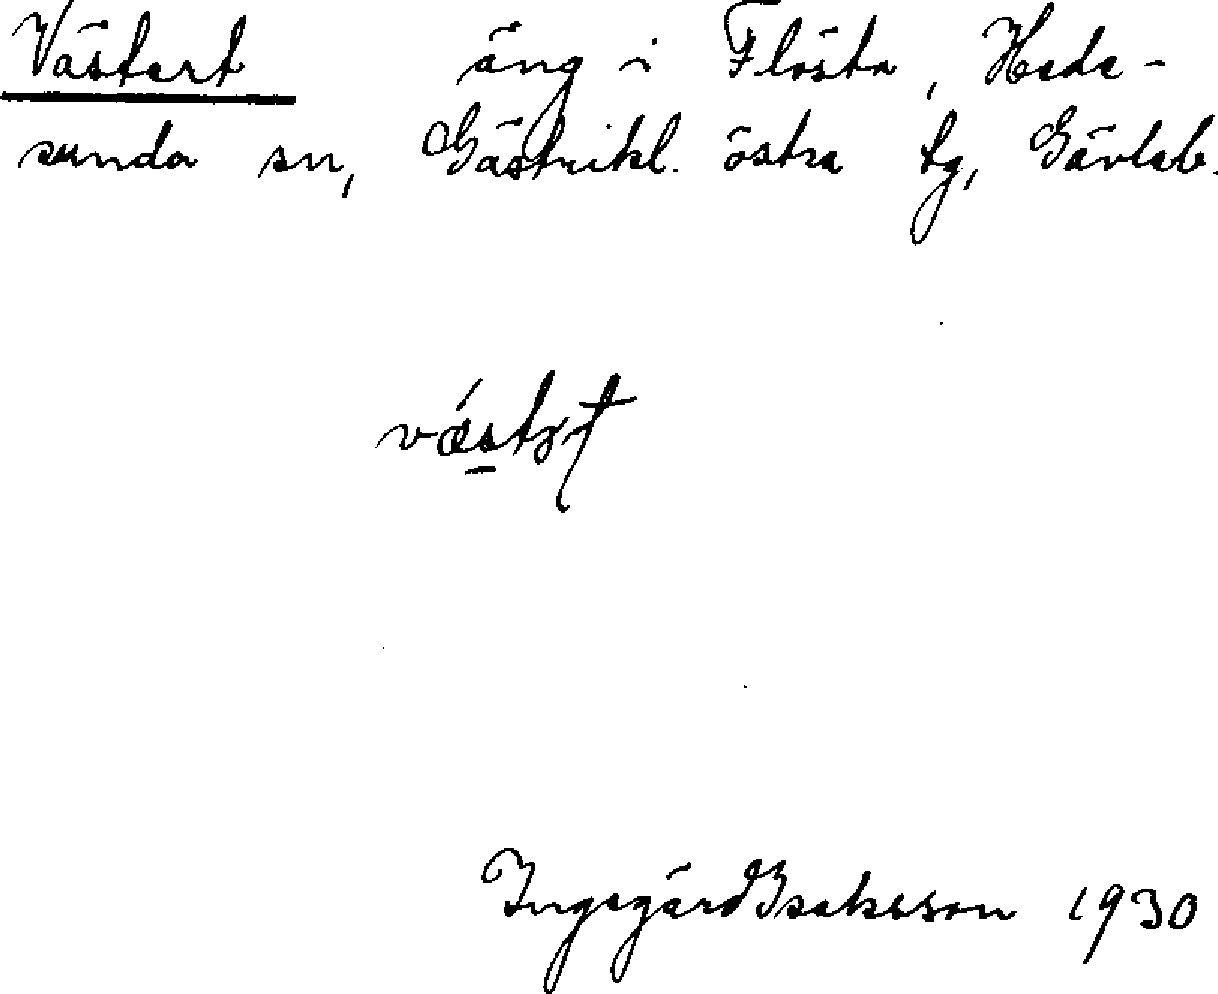 Västert äng i Flästa, Hede-
sunda sn, Gästrikl. östra tg, Gävleb.
Ingegärd Isaksson 1930